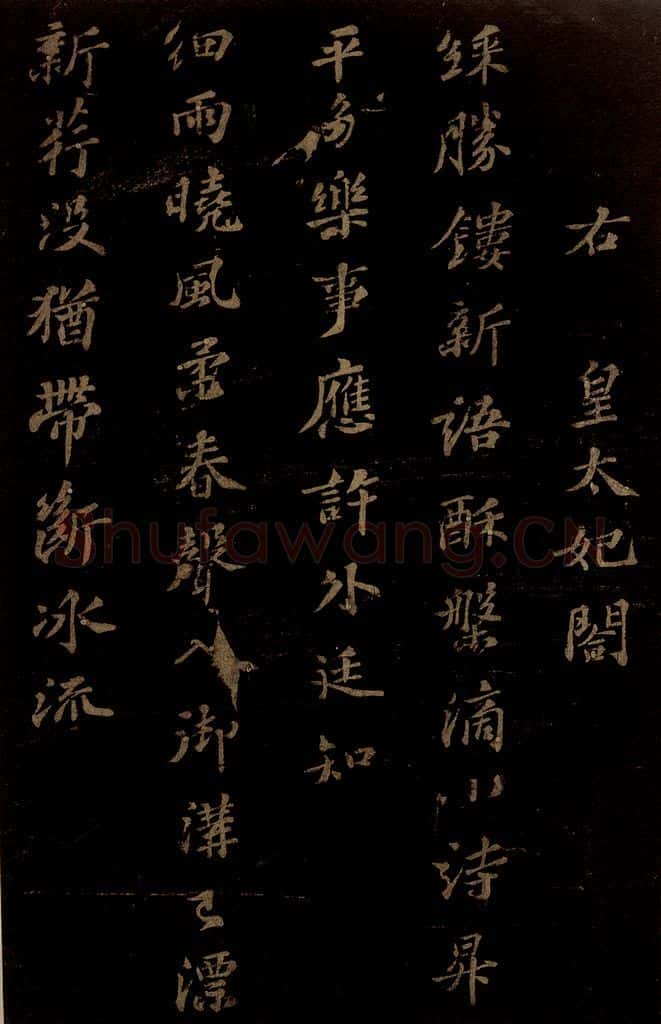 右 皇太妃閤
綵勝鏤新語酥槃滴小詩昇
平多樂事應許外廷知
細雨曉風柔春聲入御溝已漂
新荇没猶帶斷冰流
shufawang.CN